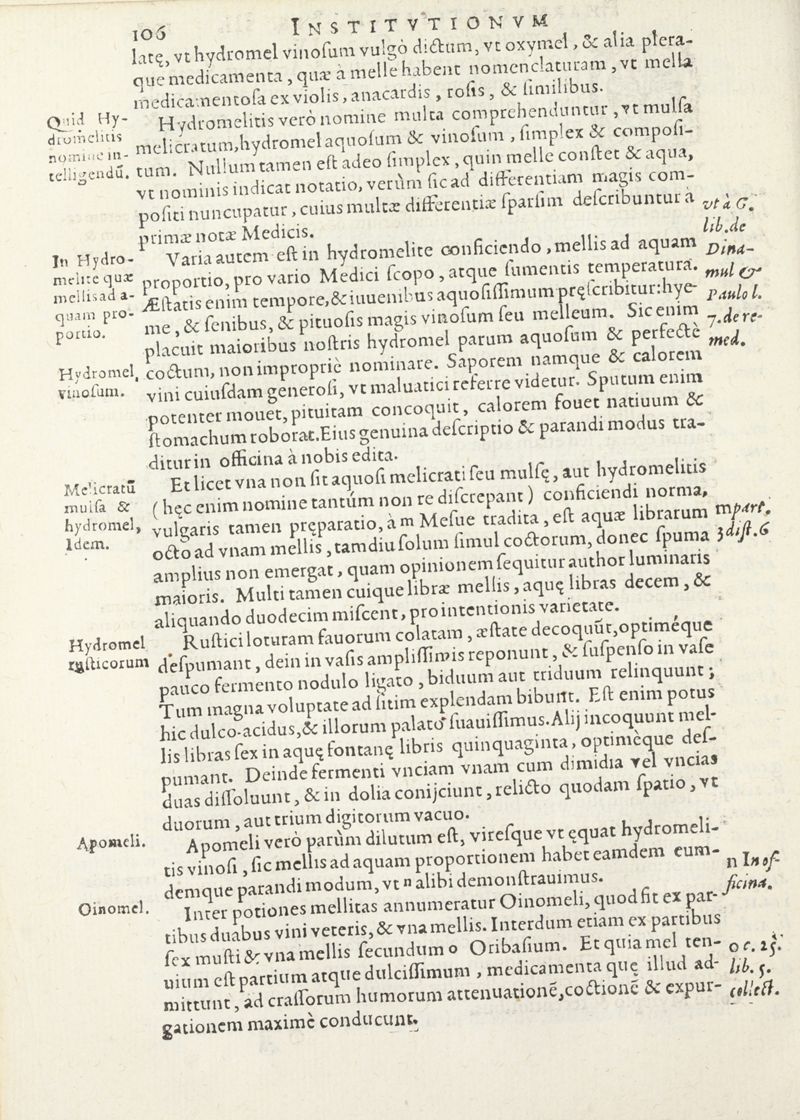 106 INSTITVTIONVM
latę, vt hydromel vinoſum vulgò dictum, vt oxymel, & alia plera-
que medicamenta, quæ à melle habent nomenclaturam, vt mella
medicamentoſa ex violis, anacardis, roſis, & ſimilibus.
Quid Hy-
dromelitis
nomine in-
telligendū.
Hydromelitis verò nomine multa comprehenduntur, vt mulſa
melicratum, hydromel aquoſum & vinoſum, ſimplex & compoſi-
tum. Nullum tamen eſt adeo ſimplex, quin melle conſtet & aqua,
vt nominis indicat notatio, verùm ſic ad differentiam magis com-
poſiti nuncupatur, cuius multæ differentiæ ſparſim deſcribuntur a
primæ notæ Medicis.
vt à G.
lib. de
Dina-
mul &
Paulo l.
7. de re-
med.
In Hydro-
melite quæ
mellis ad a-
quam pro-
portio.
Varia autem eſt in hydromelite conficiendo, mellis ad aquam
proportio, pro vario Medici ſcopo, atque ſumentis temperatura.
Æſtatis enim tempore, & iuuenibus aquoſiſſimum pręſcribitur: hye-
me, & ſenibus, & pituoſis magis vinoſum ſeu melleum. Sic enim
placuit maioribus noſtris hydromel parum aquoſum & perfectè
Hydromel
vinoſum.
coctum, non impropriè nominare. Saporem namque & calorem
vini cuiuſdam generoſi, vt maluatici referre videtur. Sputum enim
potenter mouet, pituitam concoquit, calorem fouet natiuum &
ſtomachum roborat. Eius genuina deſcriptio & parandi modus tra-
ditur in officina à nobis edita.
Melicratū
mulſa &
hydromel,
Idem.
Et licet vna non ſit aquoſi melicrati ſeu mulſę, aut hydromelitis
(hęc enim nomine tantúm non re diſcrepant) conficiendi norma,
vulgaris tamen pręparatio, à m Meſue tradita, eſt aquæ librarum
octo ad vnam mellis, tamdiu ſolum ſimul coctorum, donec ſpuma
amplius non emergat, quam opinionem ſequitur author luminaris
maioris. Multi tamen cuique libræ mellis, aquę libras decem, &
aliquando duodecim miſcent, pro intentionis varietate.
m part.
3 diſt. 6
Hydromel
ruſticorum
Ruſtici loturam fauorum colatam, æſtate decoquūt, optimeque
deſpumant, dein in vaſis ampliſſimis reponunt, & ſuſpenſo in vaſe
pauco fermento nodulo ligato, biduum aut triduum relinquunt;
Tum magna voluptate ad ſitim explendam bibunt. Eſt enim potus
hic dulco-acidus, & illorum palato ſuauiſſimus. Alij incoquunt mel-
lis libras ſex in aquę fontanę libris quinquaginta, optimèque deſ-
pumant. Deinde fermenti vnciam vnam cum dimidia vel vncias
duas diſſoluunt, & in dolia conijciunt, relicto quodam ſpatio, vt
duorum, aut trium digitorum vacuo.
Apomeli.
Apomeli verò parùm dilutum eſt, vireſque vt ęquat hydromeli-
tis vinoſi, ſic mellis ad aquam proportionem habet eamdem eum-
demque parandi modum, vt n alibi demonſtrauimus.
n In of-
ficina.
Oinomel.
Inter potiones mellitas annumeratur Oinomeli, quod fit ex par-
tibus duabus vini veteris, & vna mellis. Interdum etiam ex partibus
ſex muſti & vna mellis ſecundum o Oribaſium. Et quia mel ten-
uium eſt partium atque dulciſſimum, medicamenta quę illud ad-
mittunt, ad craſſorum humorum attenuationē, coctionē & expur-
gationem maximè conducunt.
o c. 25.
lib. 5.
collect.